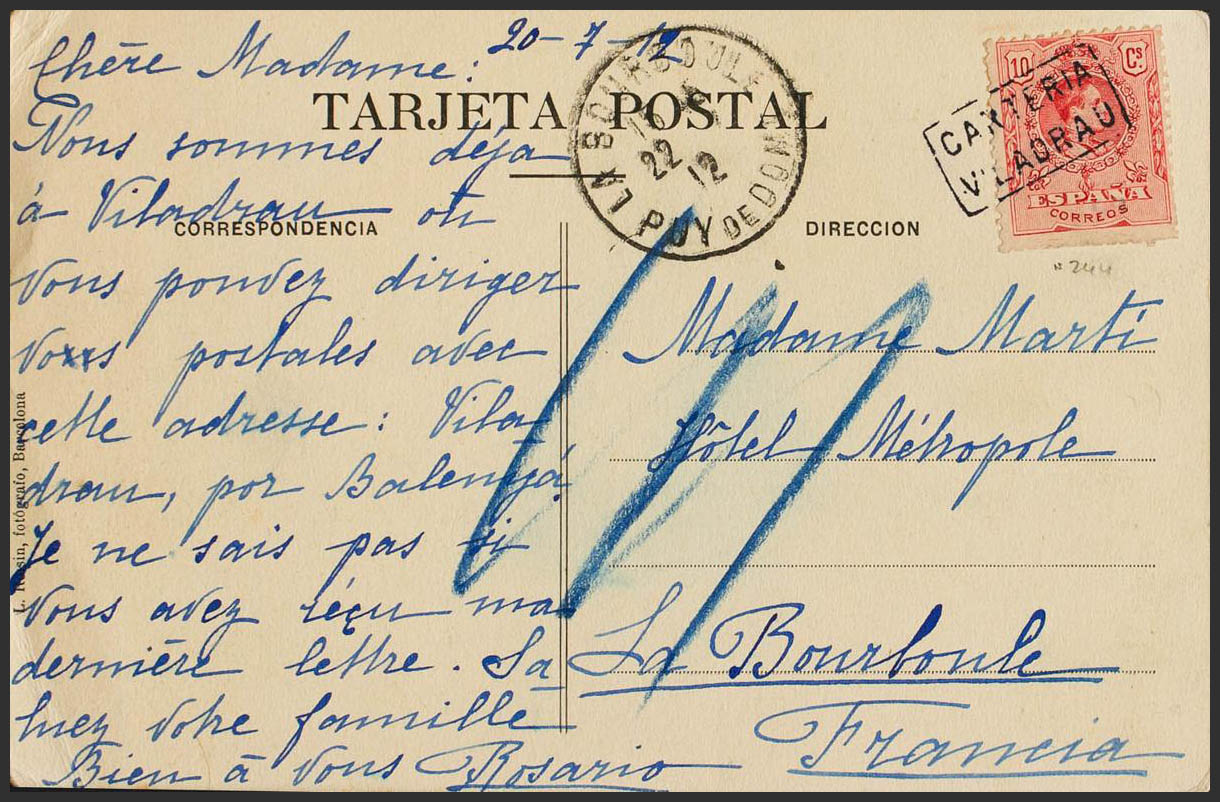 20-7-12
Chère Madame:
TARJETA POSTAL
Nous sommes déja
à Viladrau où
CORRESPONDENCIA
vous pouvez diriger
vos postales avec
cette adresse: Vila-
drau, por Balenyá
Je ne sais pas si
vous avez réçu ma
dernière lettre. Sa
luez votre famille
Bien à vous Rosario
L. Roisin, fotógrafo, Barcelona
LA BOURBOULE
22
12
PUY DE DOME
10 Cs.
CARTERIA
VILADRAU
ESPAÑA
CORREOS
DIRECCION
244
Madame Martí
Hôtel Métropole
La Bourboule
Francia